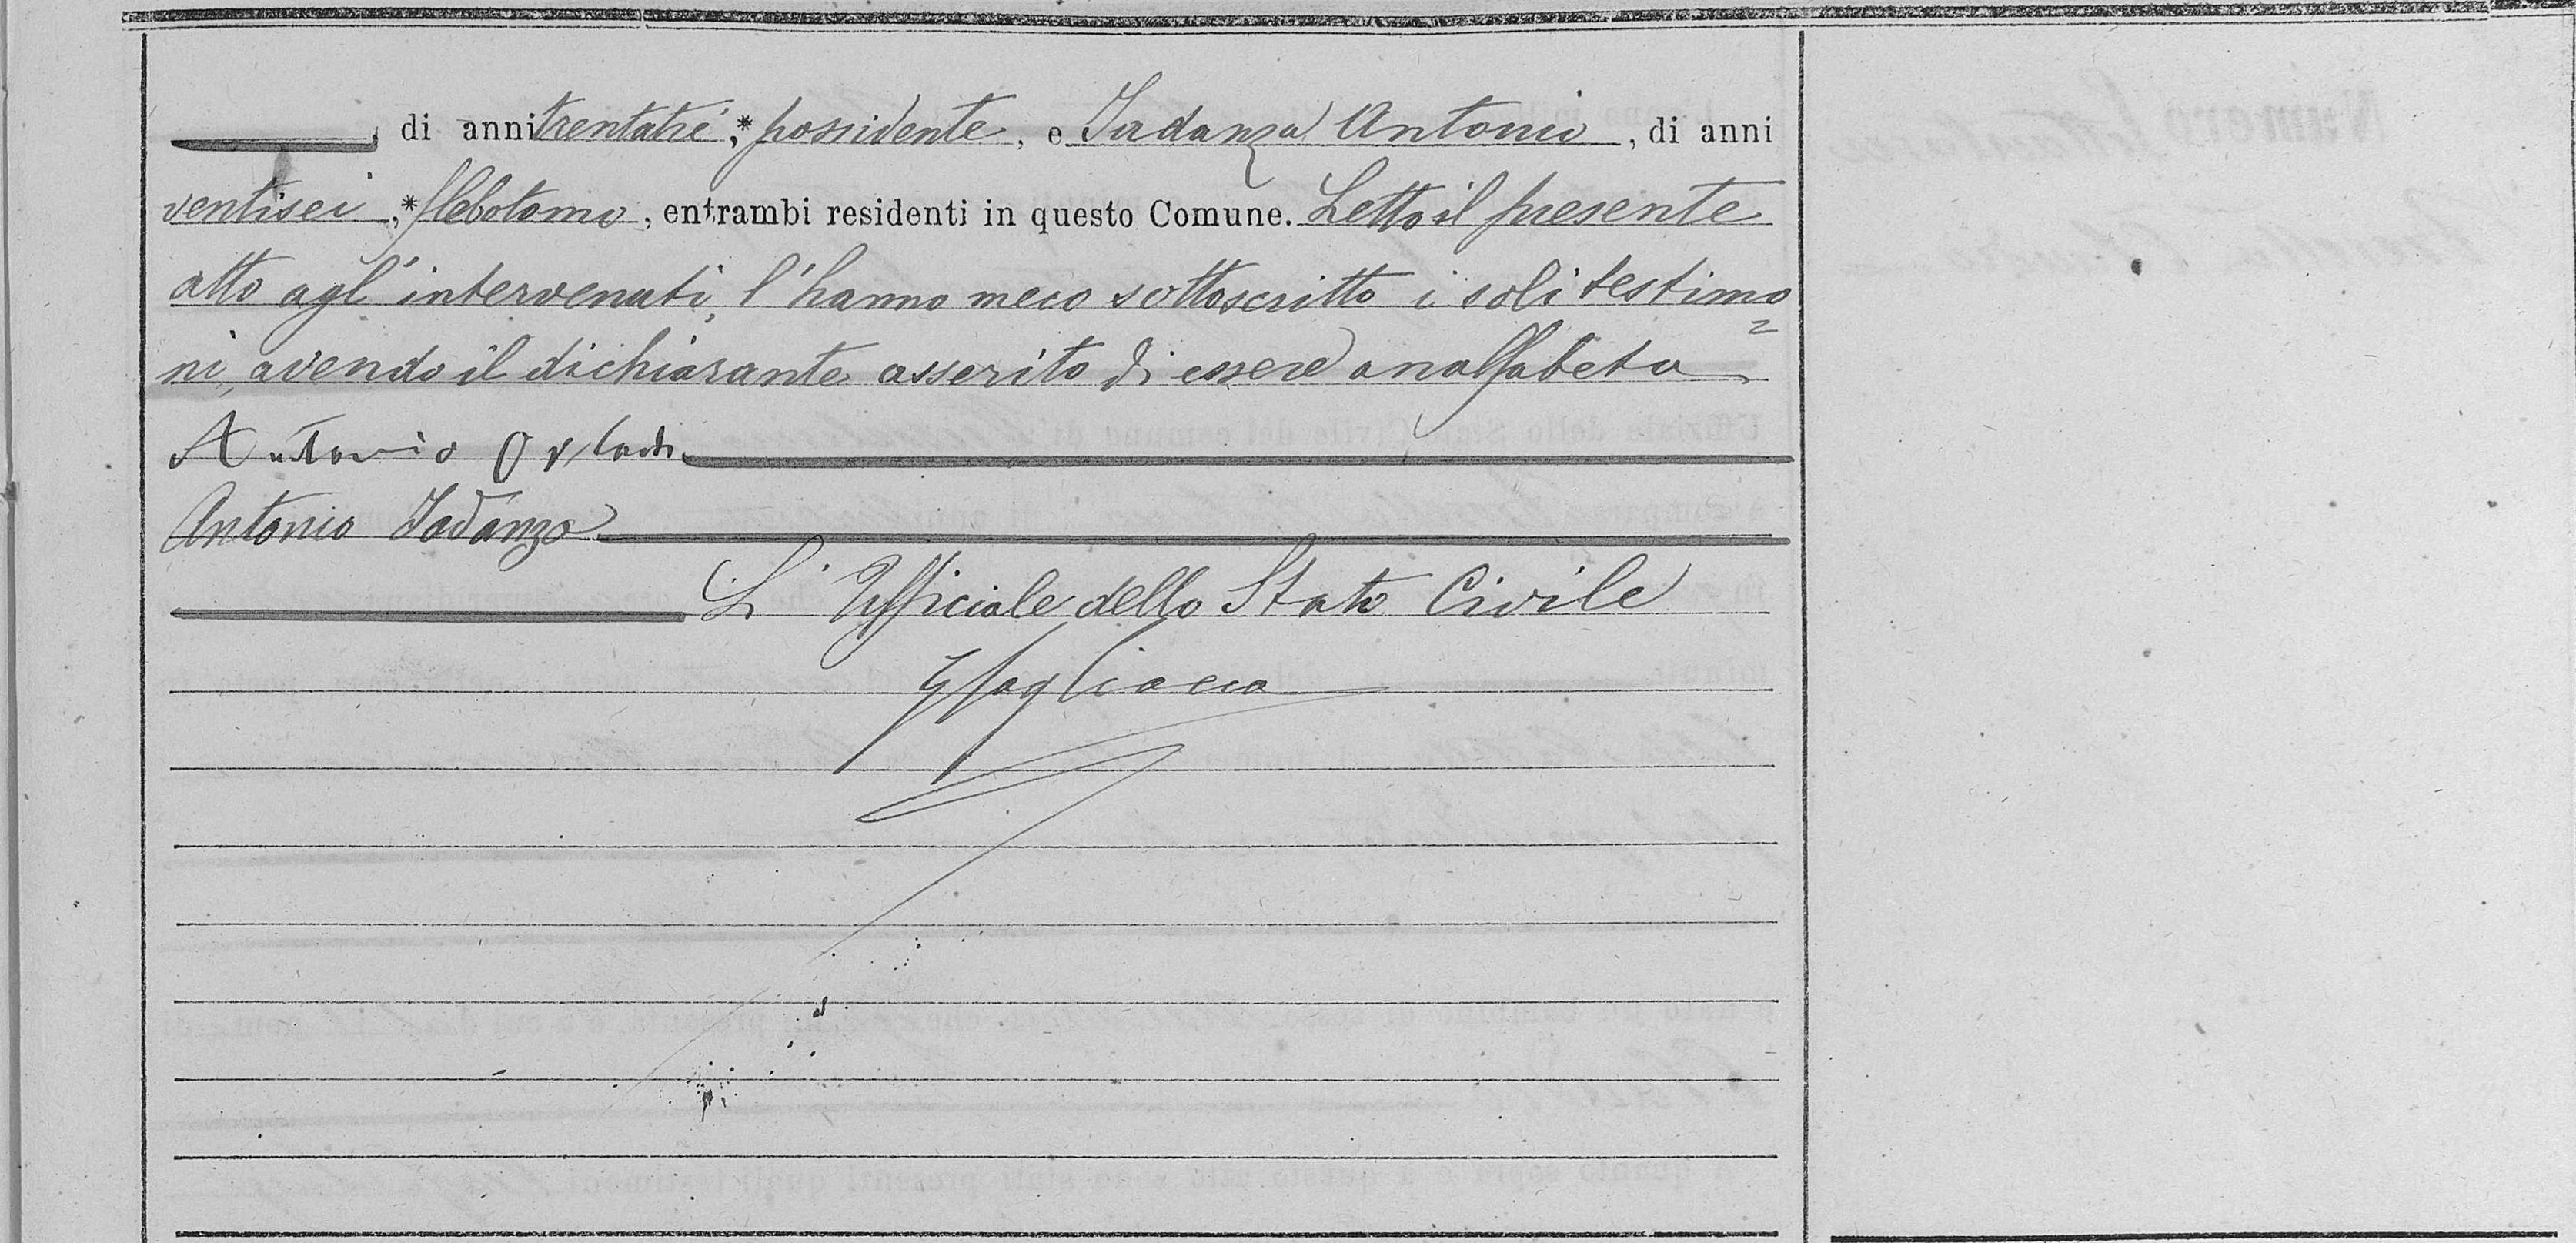 , di anni trentatrè, * possidente, e Iadanza Antonio, di anni
ventisei, * flebotomo, entrambi residenti in questo Comune. Letto il presente
atto agl'intervenuti, l'hanno meco sottoscritto i soli testimo=
ni, avendo il dichiarante asserito di essere analfabeta
Antonio
Antonio Iadanza
L'Ufficiale dello Stato Civile